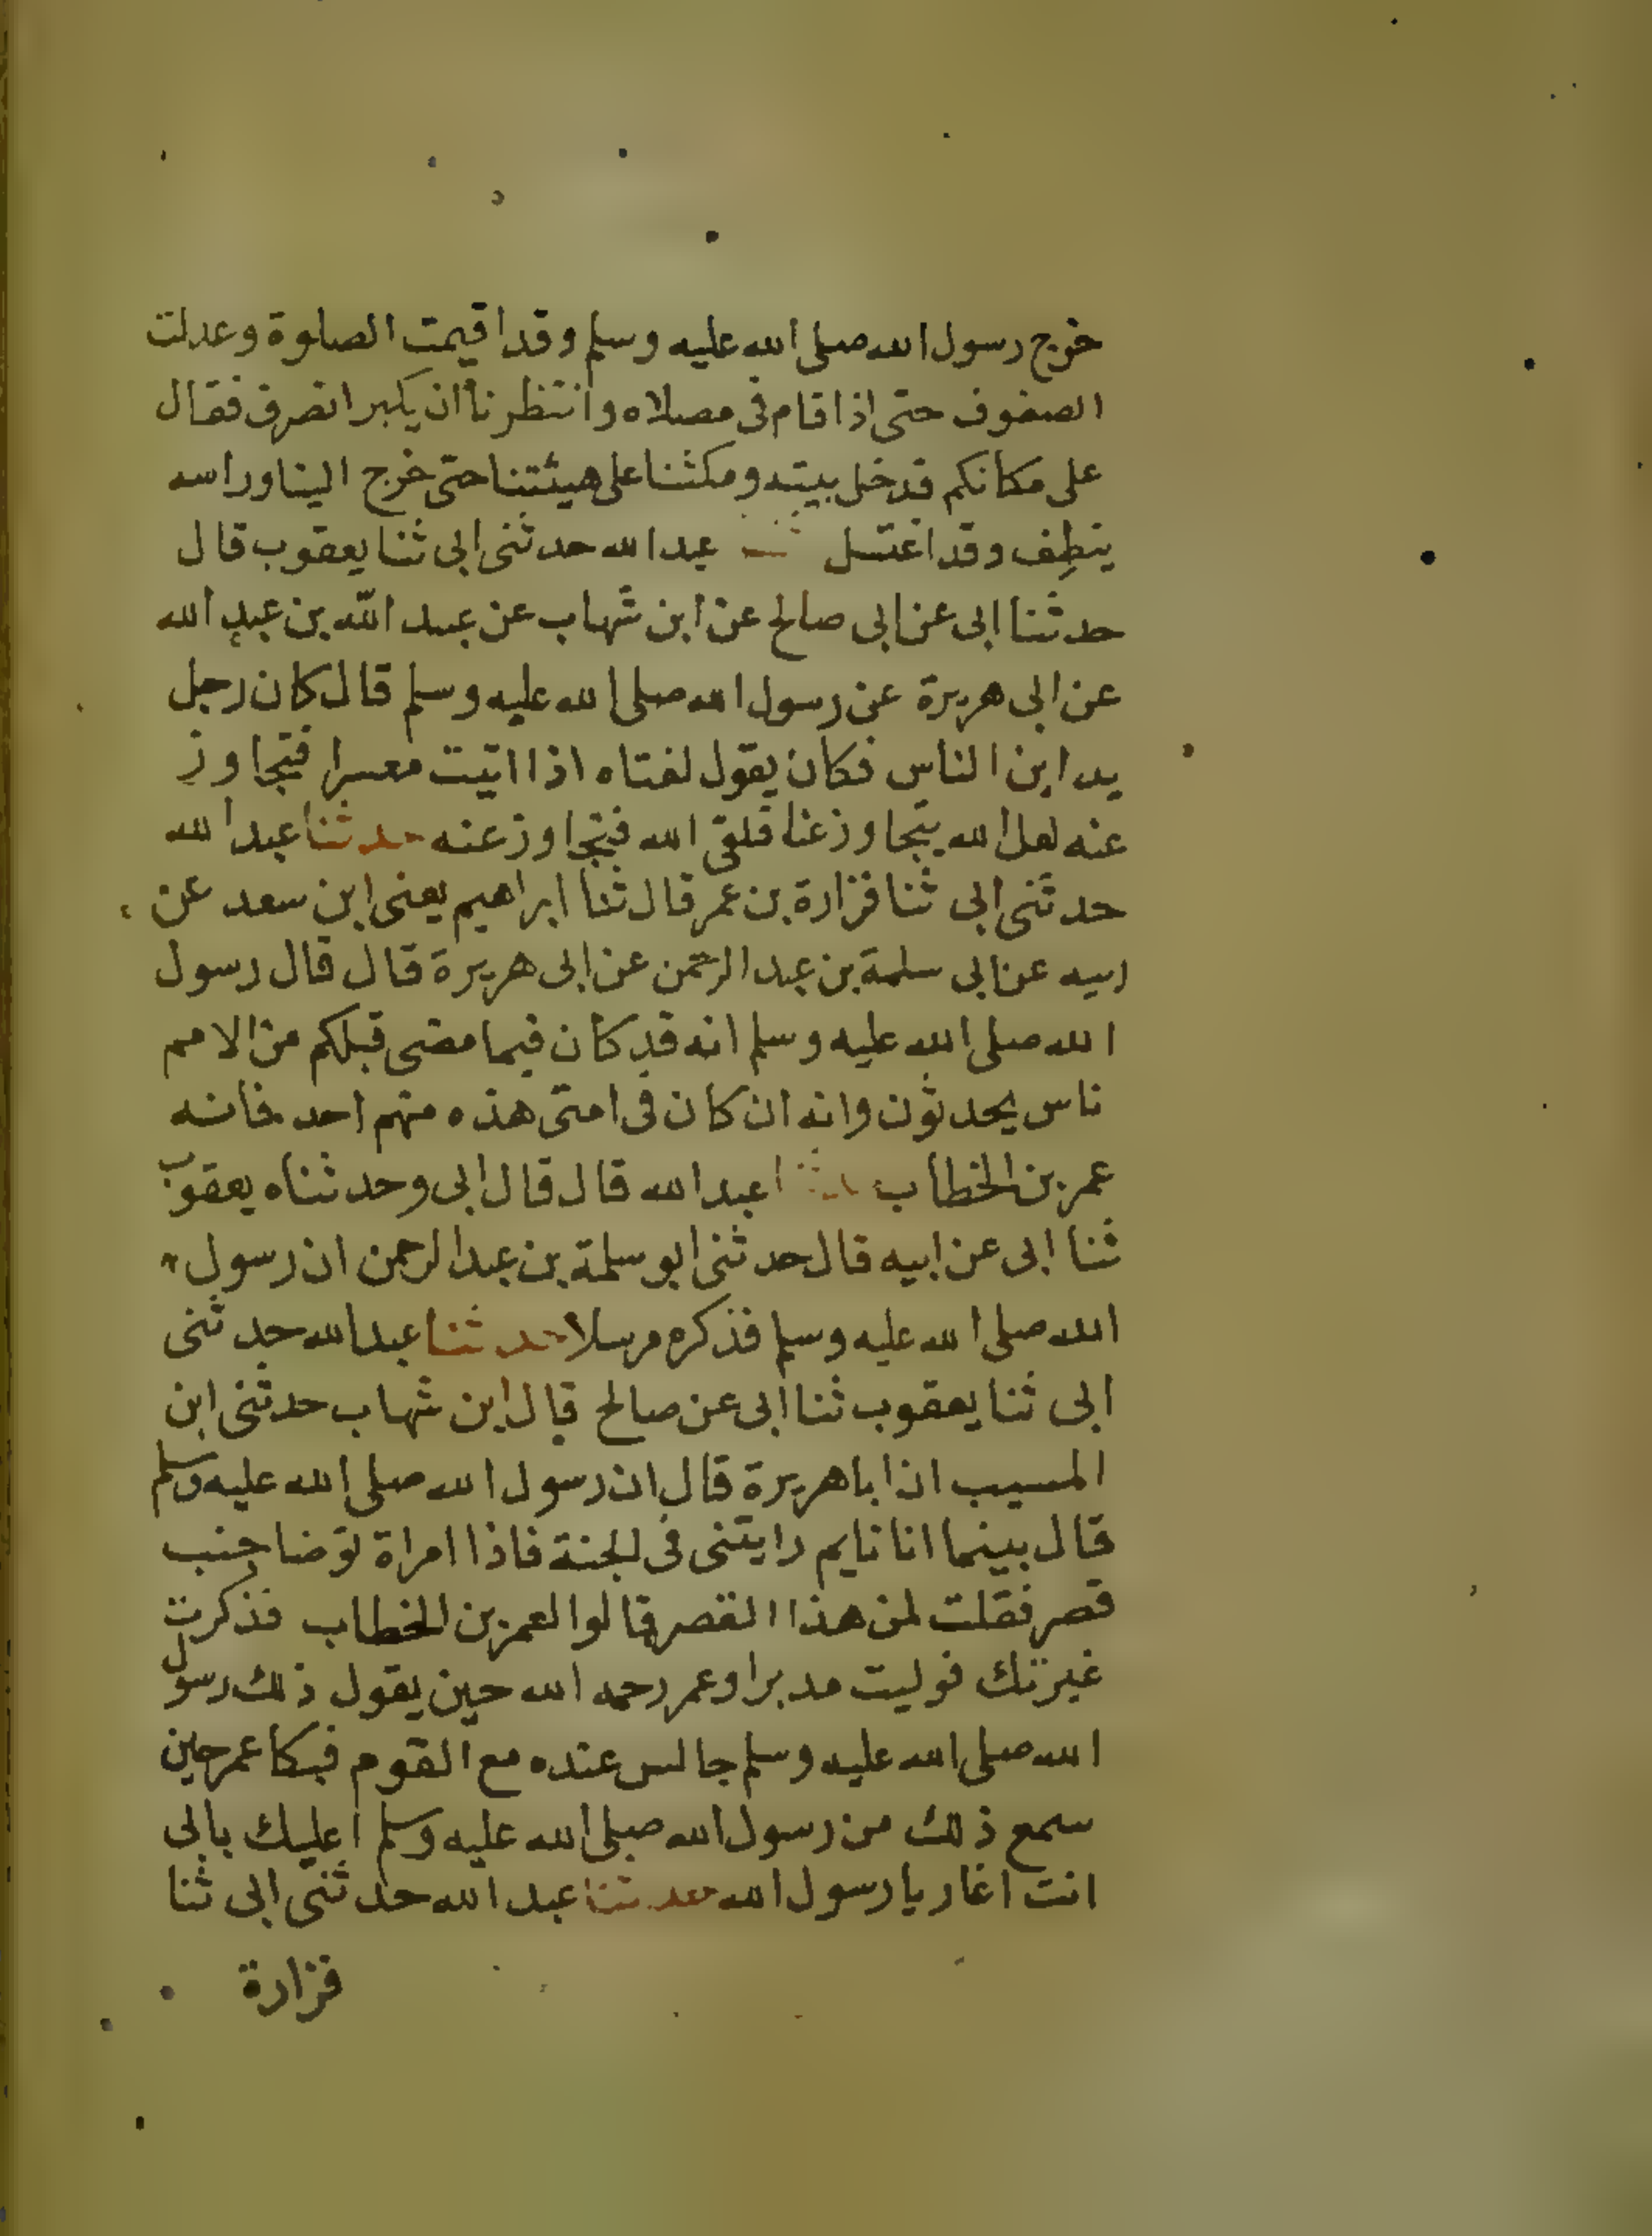 خرج رسول الله صلى الله عليه وسلم وقد اقيمت الصلوة وعدلت
الصفوف حتى اذا قام فى مصلاه وانتظرنا ان يكبر انصرف فقال
على مكانكم فدخل بيته ومكثنا على هيئتنا حتى خرج الينا وراسه
ينطِف وقد اغتسل ثنا عبد الله حدثنى ابى ثنا يعقوب قال
حدثنا ابى عن ابى صالح عن ابن شهاب عن عبيد الله بن عبد الله
عن ابى هريرة عن رسول الله صلى الله عليه وسلم قال كان رجل
يداين الناس فكان يقول لفتاه اذا اتيت معسرا فتجاوز
عنه لعل الله يتجاوز عنا فلقى الله فتجاوز عنه حدثنا عبد الله
حدثنى ابى ثنا فزارة بن عمر قال ثنا ابراهيم يعنى ابن سعد عن
ابيه عن ابى سلمة بن عبد الرحمن عن ابى هريرة قال قال رسول
الله صلى الله عليه وسلم انه قد كان فيما مضى قبلكم من الامم
ناس يحدثون وانه ان كان فى امتى هذه منهم احد فانه
عمر بن الخطاب حدثنا عبد الله قال قال ابى وحدثناه يعقوب
ثنا ابى عن ابيه قال حدثنى ابو سلمة بن عبد الرحمن ان رسول
الله صلى الله عليه وسلم فذكره مرسلا حدثنا عبد الله حدثنى
ابى ثنا يعقوب ثنا ابى عن صالح قال ابن شهاب حدثنى ابن
المسيب ان ابا هريرة قال ان رسول الله صلى الله عليه وسلم
قال بينما انا نايم رايتنى فى الجنة فاذا امراة توضا جنب
قصر فقلت لمن هذا القصر قالوا لعمر بن الخطاب فذكرت
غيرتك فوليت مدبرا وعمر رحمه الله حين يقول ذلك رسول
الله صلى الله عليه وسلم جالس عنده مع القوم فبكا عمر حين
سمع ذلك من رسول الله صلى الله عليه وسلم اعليك بابى
انت اغار يا رسول الله حدثنا عبد الله حدثنى ابى ثنا
فزارة